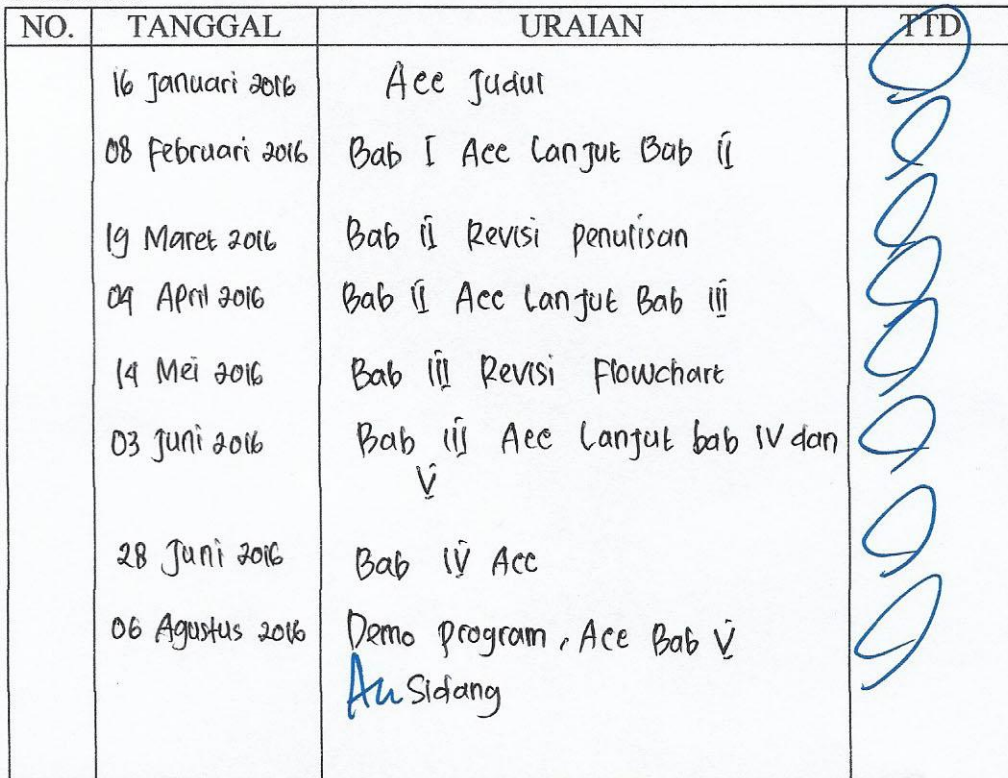 NO. TANGGAL URAIAN TTD
16 Januari 2016 Acc Judul
08 Februari 2016 Bab I Acc Lanjut Bab II
19 Maret 2016 Bab II Revisi penulisan
04 April 2016 Bab II Acc Lanjut Bab III
14 Mei 2016 Bab III Revisi Flowchart
03 Juni 2016 Bab III Acc Lanjut bab IV dan
V
28 Juni 2016 Bab IV Acc
06 Agustus 2016 Demo program, Acc Bab V
Acc Sidang